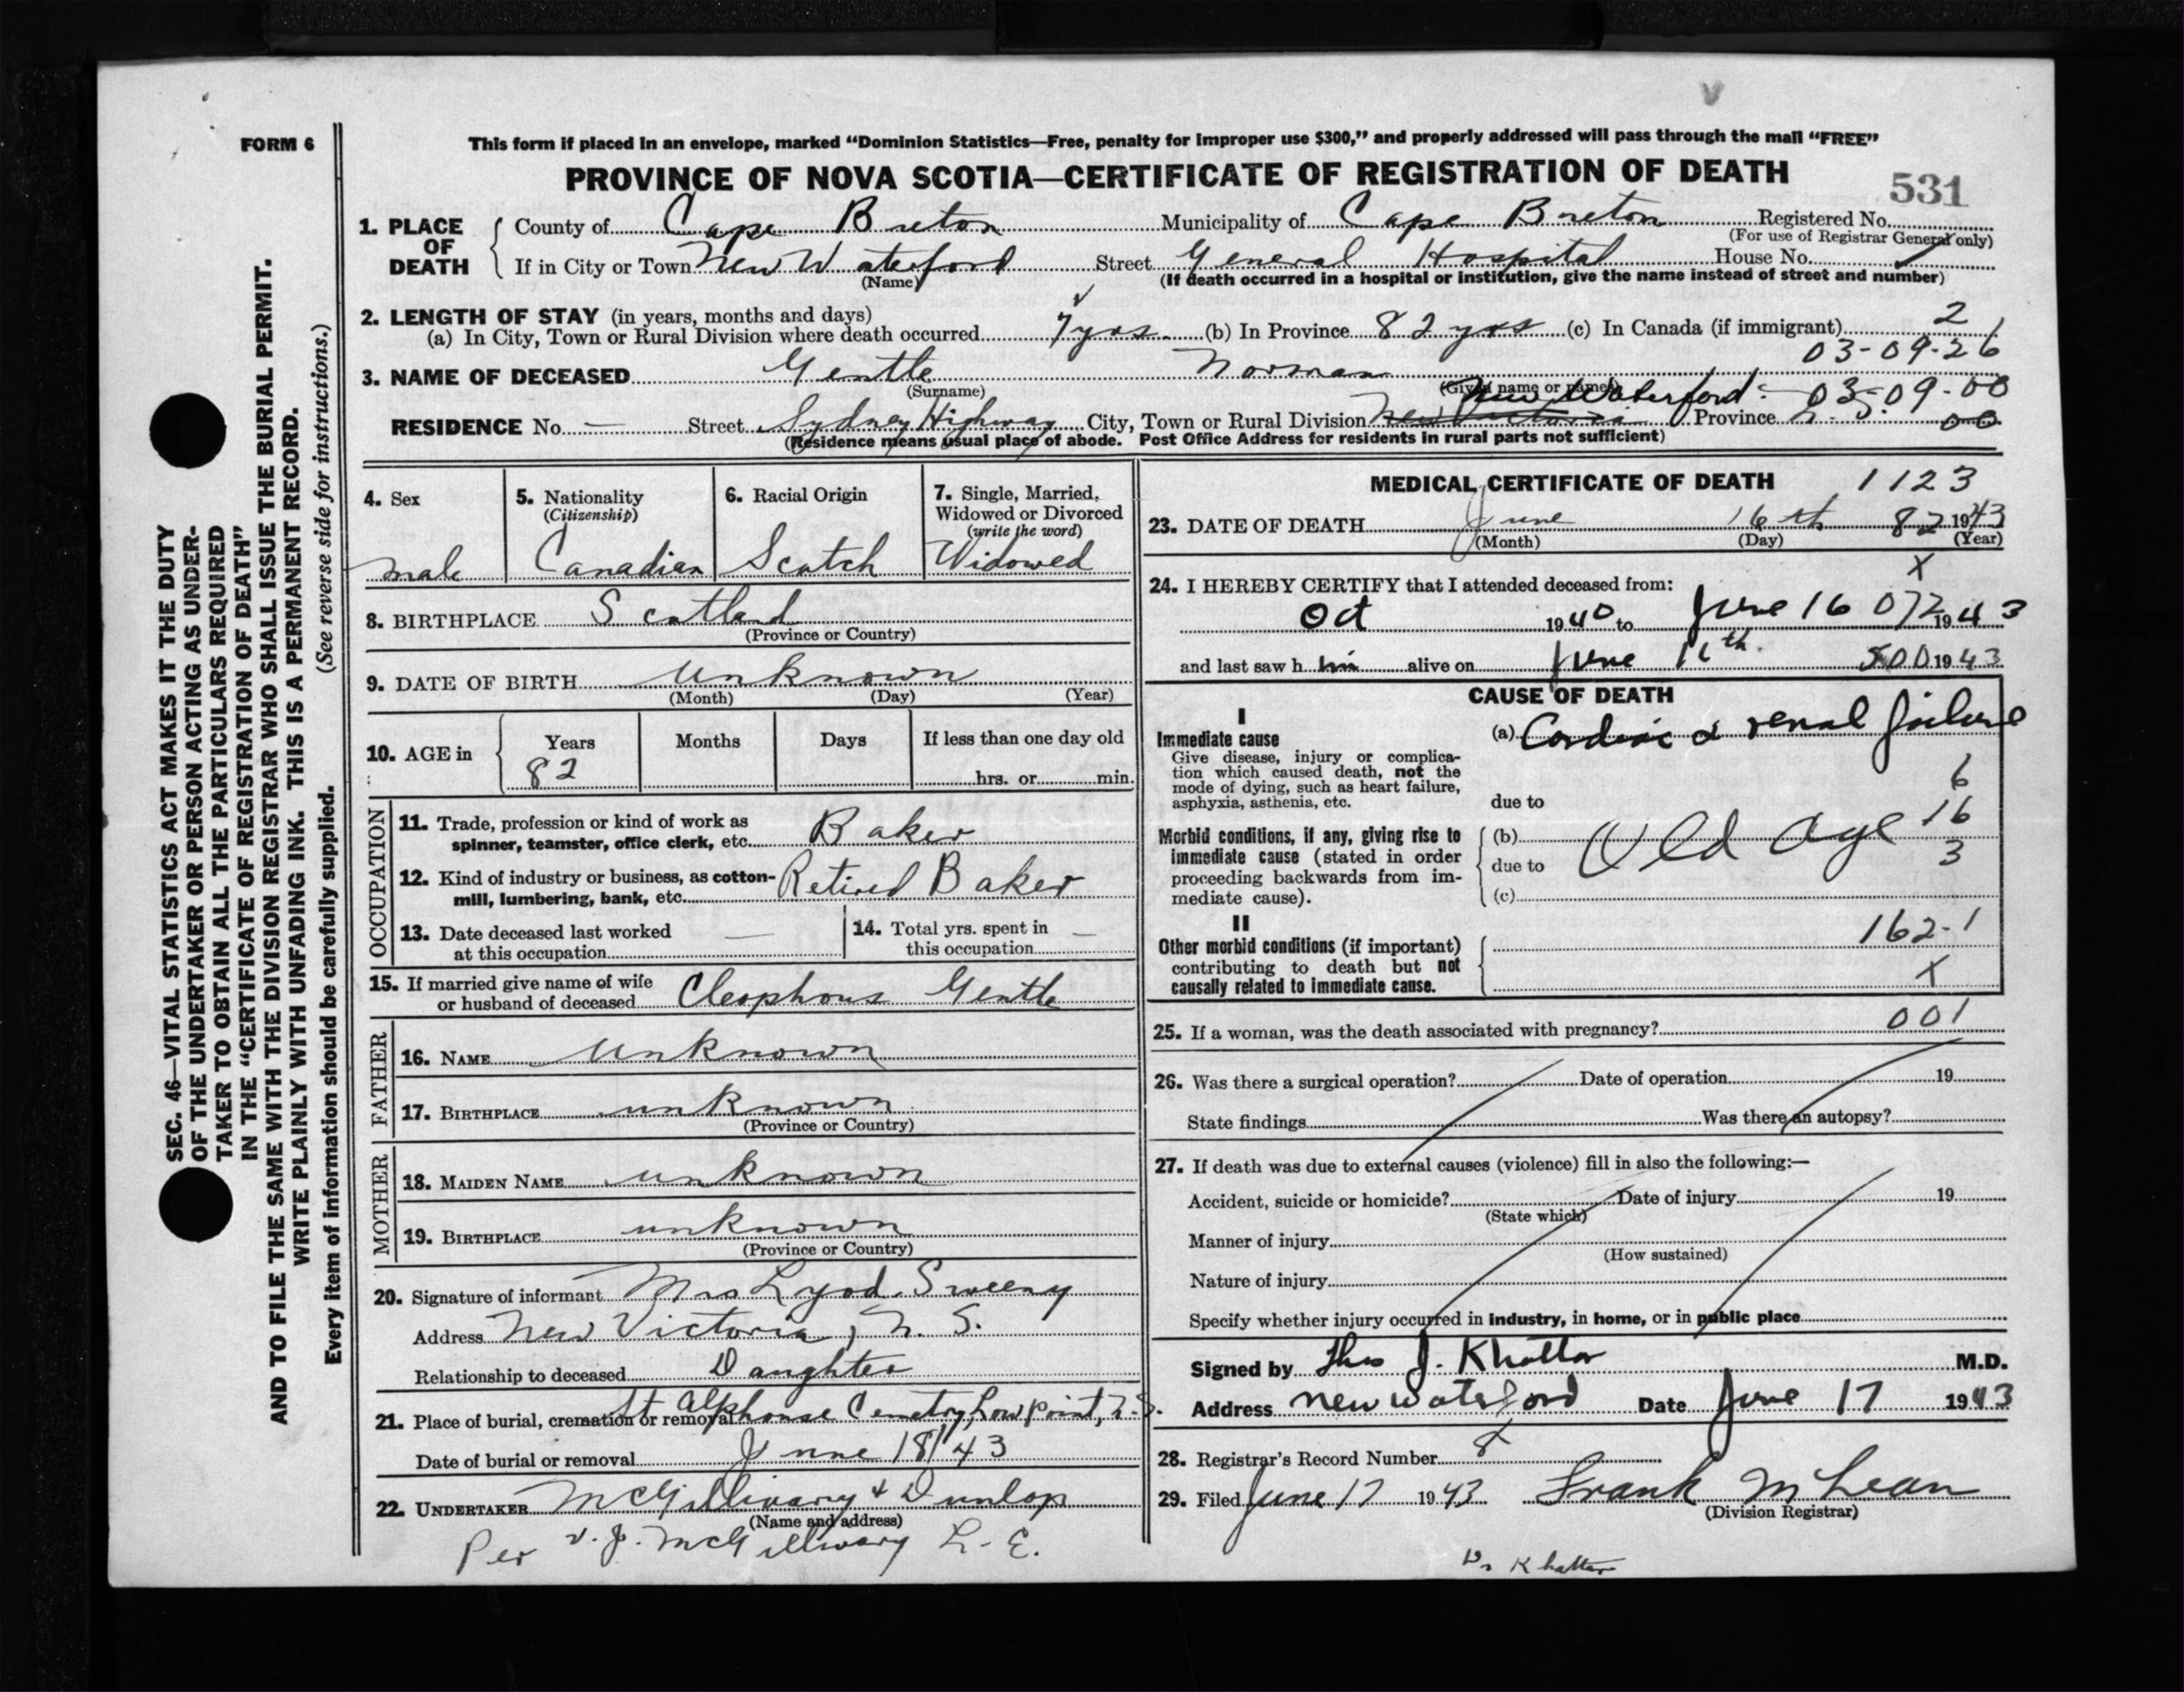 FORM 6
This form if placed in an envelope, marked “Dominion Statistics—Free, penalty for improper use $300,” and properly addressed will pass through the mail “FREE”
PROVINCE OF NOVA SCOTIA—CERTIFICATE OF REGISTRATION OF DEATH
531
1. PLACE OF DEATH
County of Cape Breton Municipality of Cape Breton Registered No.
(For use of Registrar General only)
If in City or Town New Waterford Street General Hospital House No.
(Name) (If death occurred in a hospital or institution, give the name instead of street and number)
2. LENGTH OF STAY (in years, months and days)
(a) In City, Town or Rural Division where death occurred 7 yrs (b) In Province 82 yrs (c) In Canada (if immigrant) 2
03-09-26
3. NAME OF DECEASED Gentle Norman
(Surname) (Given name or names)
New Waterford 03-09-00
RESIDENCE No. — Street Sydney Highway City, Town or Rural Division New Victoria Province N. S. 00
(Residence means usual place of abode. Post Office Address for residents in rural parts not sufficient)
4. Sex
male
5. Nationality
(Citizenship)
Canadian
6. Racial Origin
Scotch
7. Single, Married, Widowed or Divorced
(write the word)
Widowed
8. BIRTHPLACE Scotland
(Province or Country)
9. DATE OF BIRTH Unknown
(Month) (Day) (Year)
10. AGE in
Years Months Days If less than one day old
82 hrs. or min.
OCCUPATION
11. Trade, profession or kind of work as
spinner, teamster, office clerk, etc. Baker
12. Kind of industry or business, as cotton-
mill, lumbering, bank, etc. Retired Baker
13. Date deceased last worked
at this occupation —
14. Total yrs. spent in
this occupation —
15. If married give name of wife
or husband of deceased Cleophous Gentle
FATHER
16. NAME Unknown
17. BIRTHPLACE unknown
(Province or Country)
MOTHER
18. MAIDEN NAME unknown
19. BIRTHPLACE unknown
(Province or Country)
20. Signature of informant Mrs Lyod Sweeny
Address New Victoria, N. S.
Relationship to deceased Daughter
21. Place of burial, cremation or removal St Alphonse Cemetry, Low Point, N. S.
Date of burial or removal June 18/43
22. UNDERTAKER McGillivary & Dunlop
(Name and address)
Per V. J. McGillivary L. E.
MEDICAL CERTIFICATE OF DEATH 1123
23. DATE OF DEATH June 16th 82 1943
(Month) (Day) (Year)
X
24. I HEREBY CERTIFY that I attended deceased from:
Oct 1940 to June 16 072 1943
and last saw h him alive on June 16th 500 1943
CAUSE OF DEATH
I
Immediate cause
Give disease, injury or complica-
tion which caused death, not the
mode of dying, such as heart failure,
asphyxia, asthenia, etc.
(a) Cardiac & renal failure
6
due to
16
Morbid conditions, if any, giving rise to
immediate cause (stated in order
proceeding backwards from im-
mediate cause).
(b) Old age
due to 3
(c)
II
Other morbid conditions (if important)
contributing to death but not
causally related to immediate cause.
162-1
X
25. If a woman, was the death associated with pregnancy? 001
26. Was there a surgical operation? Date of operation 19
State findings Was there an autopsy?
27. If death was due to external causes (violence) fill in also the following:—
Accident, suicide or homicide? Date of injury 19
(State which)
Manner of injury
(How sustained)
Nature of injury
Specify whether injury occurred in industry, in home, or in public place
Signed by Thos J. Khattar M.D.
Address New Waterford Date June 17 1943
28. Registrar's Record Number 8
29. Filed June 17 1943 Frank McLean
(Division Registrar)
Dr Khattar
SEC. 46—VITAL STATISTICS ACT MAKES IT THE DUTY
OF THE UNDERTAKER OR PERSON ACTING AS UNDER-
TAKER TO OBTAIN ALL THE PARTICULARS REQUIRED
IN THE “CERTIFICATE OF REGISTRATION OF DEATH”
AND TO FILE THE SAME WITH THE DIVISION REGISTRAR WHO SHALL ISSUE THE BURIAL PERMIT.
WRITE PLAINLY WITH UNFADING INK. THIS IS A PERMANENT RECORD.
Every item of information should be carefully supplied. (See reverse side for instructions.)